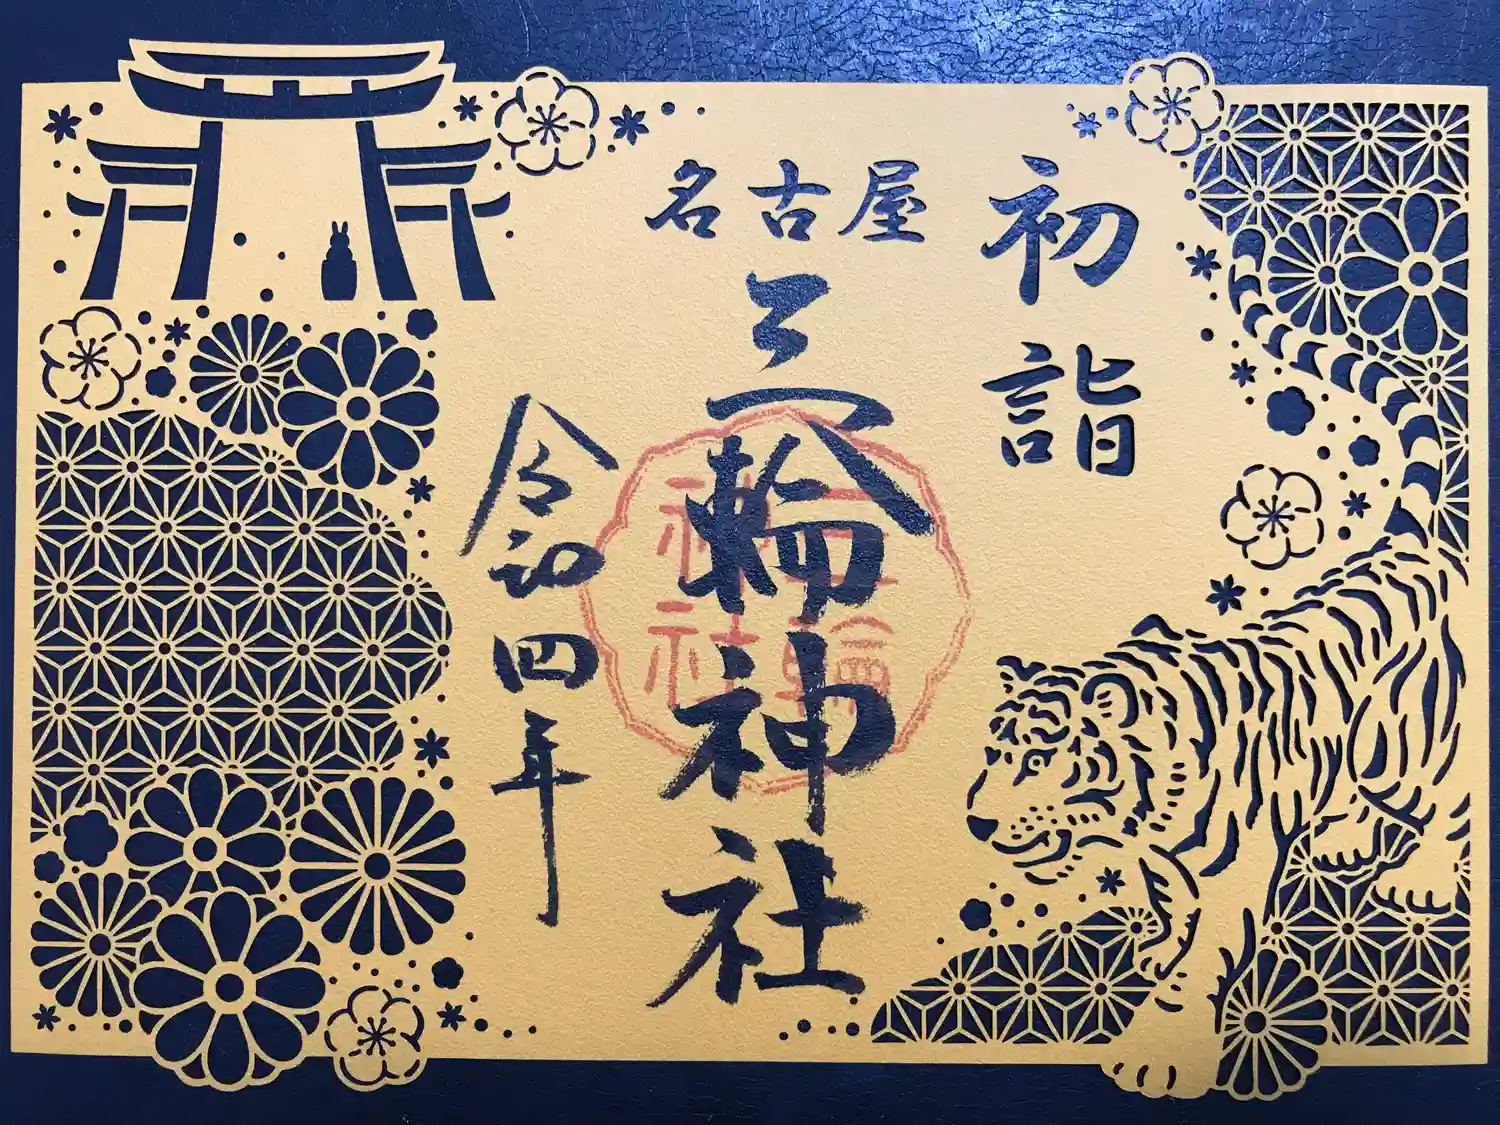 初詣
名古屋
三輪神社
令和四年
三輪
神社